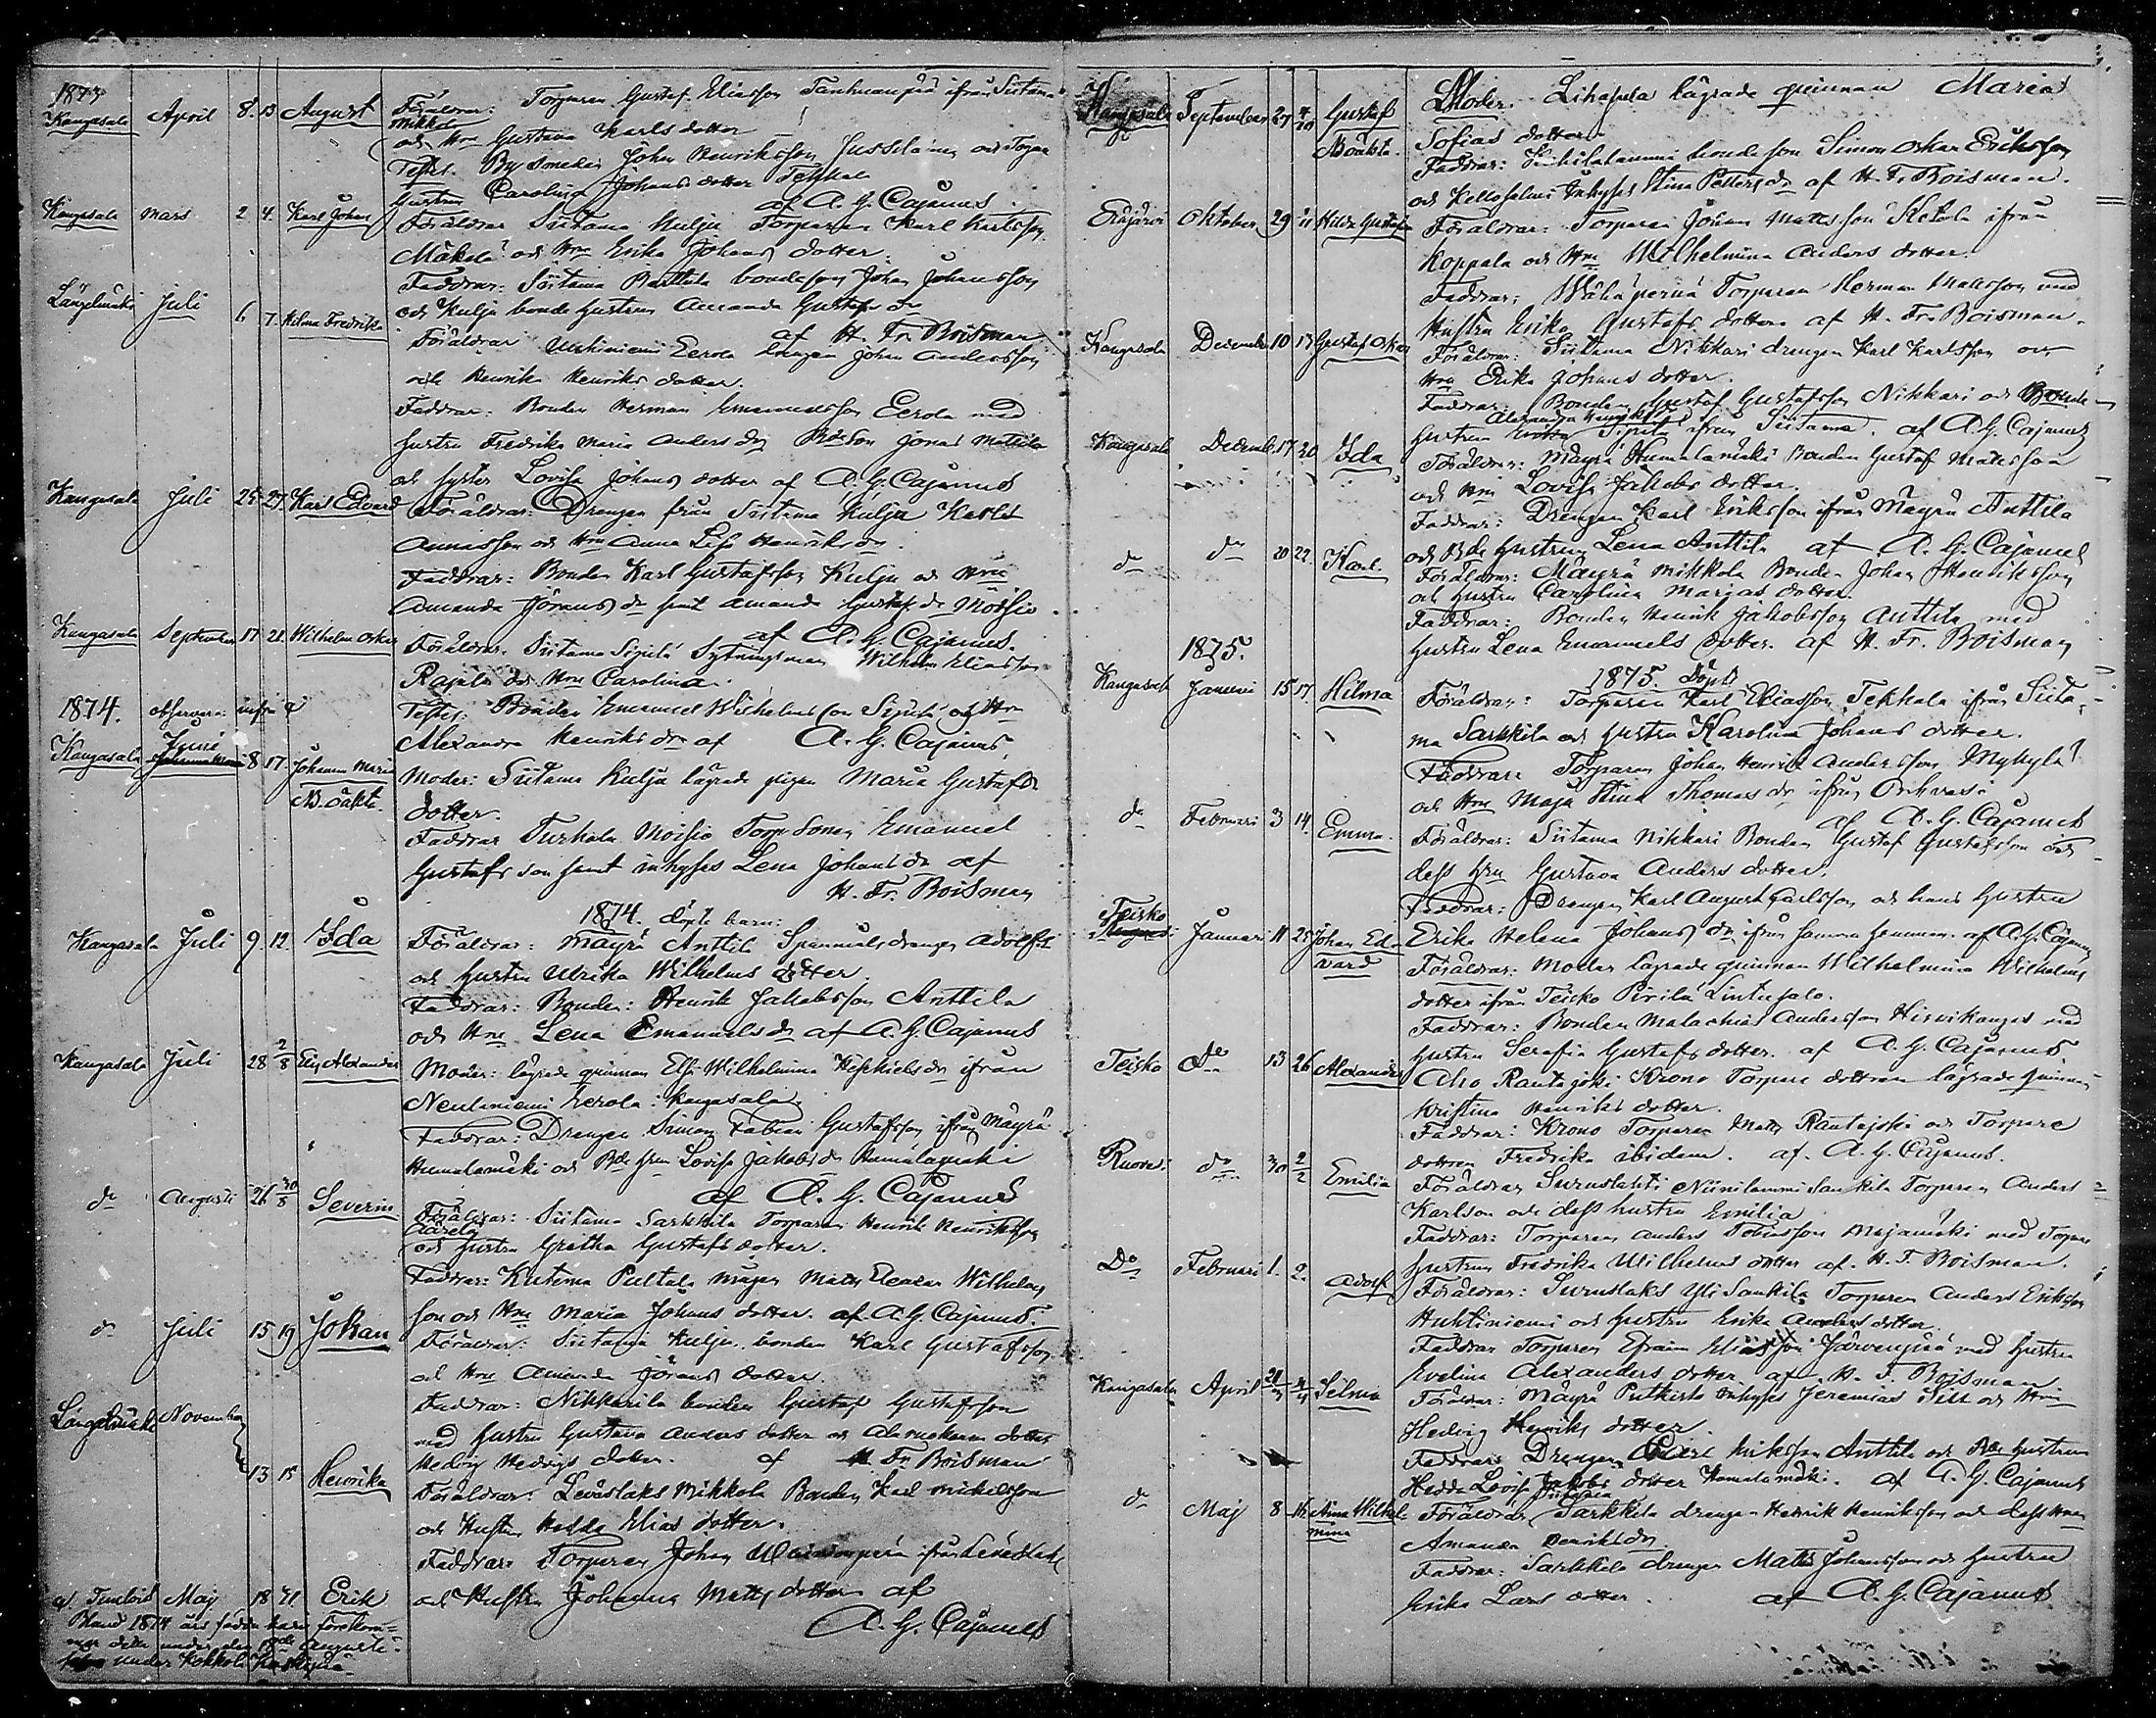 1873
Kangasala April 8. 13 August Föräldrar: Torparen Gustaf Eliasson ifrån Siitama
Mikkola
och Hru Gustava Karls dotter
Testes. By smeden Johan Henriksson och
hustrun Carolina Johans dotter Tekkala
af A. G. Cajanus
Kangasala Mars 2 4. Karl Johan Föräldrar Siitama Kulju Torparen Karl Karlsson
Mäkelä och Hru Erika Johans dotter.
Faddrar: Siitama Perttula bondeson Johan Johansson
och Kulju bonde hustrun Amanda Gustafs dr
af H. Fr. Boisman
Längelmäki Juli 6 7. Hilma Fredrika Föräldrar Uskiniemi Eerola drengen Johan Andersson
och Henrika Henriks dotter.
Faddrar: Bonden Herman Emanuelsson Eerola med
hustru Fredrika Maria Anders dr Jonas Mattila
och syster Lovisa Johans dotter af A. G. Cajanus
Kangasala Juli 25 27. Karl Edvard Föräldrar: Drengen från Siitama Kulju Karl
Annasson och Hru Anna Lisa Henriks dr.
Faddrar: Bonden Karl Gustafsson Kulju och Hru
Amanda Görans dr samt Amanda Gustafs dr Moisio
af A. G. Cajanus.
Kangasala September 17 21. Wilhelm Oskar Föräldrar. Siitama Sipilä Sytningsman Wilhelm Eliasson
Rajala och Hru Carolina.
Testes: Bonden Emanuel Wilhelmsson Sipilä och Hru
Alexandra Henriks dr af A. G. Cajanus
1874.
Kangasala Junii 8 17 Johanna Maria Moder: Siitama Kulju lägrade pigan Maria Gustafs
N.B. Oäkta. dotter.
Faddrar Turkola Moisio Torp sonen Emanuel
Gustafs son samt inhyses Lena Johans dr af
H. Fr. Boisman
1874. döpte barn:
Kangasala Juli 9. 12. Ida Föräldrar: Mäyrä Anttila drengen Adolf
och hustru Ulrika Wilhelms dotter.
Faddrar: Bonden: Henrik Jakobsson Anttila
och Hru Lena Emanuels dr af A. G. Cajanus
Kangasala Juli 28 2/8 Alexander Moder: lägrade qvinnan Wilhelmina ifrån
Eerola i Kangasala.
Faddrar: Drengen Simon Fabian Gustafsson ifrån Mäyrä
Humalamäki och Bde hru Lovisa Jakobs dr Humalamäki
af A. G. Cajanus
do Augusti 26 30/8 Severin Föräldrar: Siitama Sarkkila Torparen Henrik Henriksson
och hustru Gretha Gustafs dotter.
Faddrar: Kutema Pultala mågen Matts Wilhelms
son och Hru Maria Johans dotter. af A. G. Cajanus.
do Juli 15 19 Johan Föräldrar: Siitama Kulju bonden Karl Gustafsson
och Hru Amanda Görans dotter
Faddrar: Nikkarila bonden Gustaf Gustafsson
med hustru Gustava Anders dotter
Hedvig Hedvigs dotter. af H. Fr. Boisman
Längelmäki November 13 15 Henrika Föräldrar: Leväslaks Mikkola Bonden Karl Mickelsson
och Hustru Hedda Elias dotter.
Faddrar: Torparen Johan ifrån Leväslaks
och Hustru Johanna Matts dotter af
A. G. Cajanus
Maj 18 21 Erik
Bland 1874 års födde barn
under Kokkola

Kangasala September 27 4/10 Gustaf Moder. Liihasula lägrade qvinnan Maria
N.B. Oäkta. Sofias dotter
Faddrar: bonde son Simon Oskar Eriksson
och inhyses Stina Petters dr af H. Fr. Boisman.
Eräjärvi Oktober 29 Hilda Gustafva Föräldrar: Torparen Johan Mattsson Ketola ifrån
Koppala och Hru Wilhelmina Anders dotter.
Faddrar: Torparen Herman Mattsson med
Hustru Erika Gustafs dotter af H. Fr. Boisman.
Kangasala December 10 17 Gustaf Oskar Föräldrar: Siitama Nikkari drengen Karl Karlsson och
Hru Erika Johans dotter.
Faddrar Bonden Gustaf Gustafsson Nikkari och Bonde
hustrun Alexandra Henriks dr Sipilä ifrån Siitama. af A. G. Cajanus
Kangasala December 17 20 Ida Föräldrar: Mäyrä Humalamäki Bonden Gustaf Mattsson
och Hru Lovisa Jakobs dotter.
Faddrar: Drengen Karl Eriksson ifrån Mäyrä Anttila
och Bde hustrun Lena Anttila af A. G. Cajanus
do do 20 22. Karl. Föräldrar: Mäyrä Mikkola Bonden Johan Henriksson
och hustru Carolina Marias dotter.
Faddrar: Bonden Henrik Jakobsson Anttila med
hustru Lena Emanuels dotter. af H. Fr. Boisman
1875. 1875. Döpte
Kangasala Januari 15 17. Hilma Föräldrar: Torparen Karl Eliasson Tekkala ifrån Siita
ma Sarkkila och hustru Karolina Johans dotter.
Faddrar: Torparen Johan Henrik Andersson Mykylä
och Hru Maja Stina Thomas dr ifrån Orihvesi
af A. G. Cajanus
do Februari 3 14. Emma. Föräldrar: Siitama Nikkari Bonden Gustaf Gustafsson och
dess Hru Gustava Anders dotter.
Faddrar: Drengen Karl August Carlsson och hans hustru
Erika Helena Johans dr ifrån samma hemman. af A. G. Cajanus
Teisko Januari 11 25 Johan Ed-
vard Föräldrar: Moder lägrade qvinnan Wilhelmina Wilhelms
dotter ifrån Teisko Pirilä Lintupalo.
Faddrar: Bonden Malachias Andersson Hirvikangas med
hustru Serafia Gustafs dotter. af A. G. Cajanus.
Teisko do 13 26 Alexander Aho Rantajoki Krono Torpare dottren lägrade qvinnan
Kristina Henriks dotter.
Faddrar: Krono Torparen Matts Rantajoki och Torpare
dottren Fredrika ibidem. af. A. G. Cajanus.
Ruovesi do 30 2/2 Emilia Föräldrar Sankila Torparen Anders
Karlson och dess hustru Emilia
Faddrar: Torparen Anders Tobiasson Majamäki med Torpare
hustrun Fredrika Wilhelms dotter af. H. F. Boisman.
Do Februari 1. 2. Adolf Föräldrar: Yli Sankila Torparen Anders Eriksson
Huhtiniemi och hustru Erika Anders dotter.
Faddrar Torparen Efraim Eliasson Järvenpää med hustru
Evelina Alexanders dotter af H. F. Boisman
Kangasala April Selma Föräldrar: Mäyrä inhyses Jeremias och Hru
Hedvig Henriks dotter.
Faddrar Drengen Karl Eriksson Anttila och Bde hustrun
Hedda Lovisa Jakobs dotter Humalamäki. af A. G. Cajanus
do Maj 8 16 Anna Wilhel-
mina Föräldrar Siitama Sarkkila drengen Henrik Henriksson och dess Hru
Amanda Henriks dr
Faddrar: Sarkkila drengen Matts Johansson och hustru
Erika Lars dotter. af A. G. Cajanus